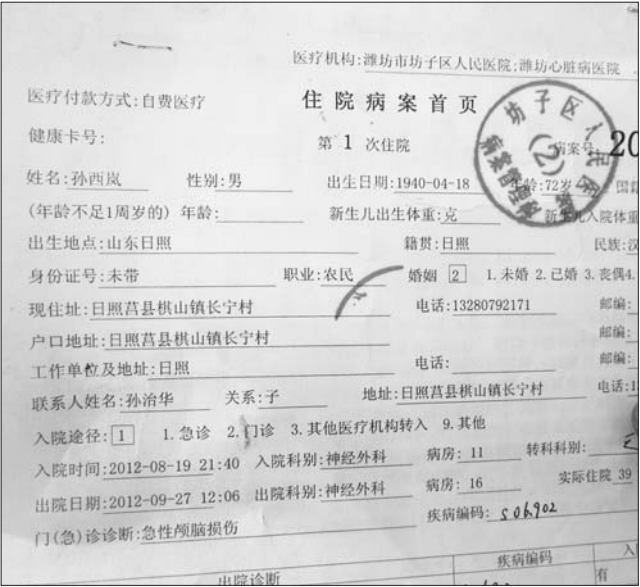 医疗机构:潍坊市坊子区人民医院;潍坊心脏病医院
医疗付款方式:自费医疗
住院病案首页
坊子区人民医院
(2)
病案管理
健康卡号:
第 1 次住院
病案号 20
姓名:孙西岚 性别:男 出生日期:1940-04-18 年龄:72岁 国籍
(年龄不足1周岁的) 年龄: 新生儿出生体重:克 新生儿入院体重
出生地点:山东日照 籍贯:日照 民族:汉
身份证号:未带 职业:农民 婚姻 2 1.未婚 2.已婚 3.丧偶4.
现住址:日照莒县棋山镇长宁村 电话:13280792171 邮编:
户口地址:日照莒县棋山镇长宁村 邮编:
工作单位及地址:日照 电话: 邮编:
联系人姓名:孙治华 关系:子 地址:日照莒县棋山镇长宁村 电话:1
入院途径: 1 1.急诊 2.门诊 3.其他医疗机构转入 9.其他
入院时间:2012-08-19 21:40 入院科别:神经外科 病房: 11 转科科别:
出院日期:2012-09-27 12:06 出院科别:神经外科 病房: 16 实际住院 39
门(急)诊诊断:急性颅脑损伤 疾病编码: S06.902
出院诊断 疾病编码 入
有